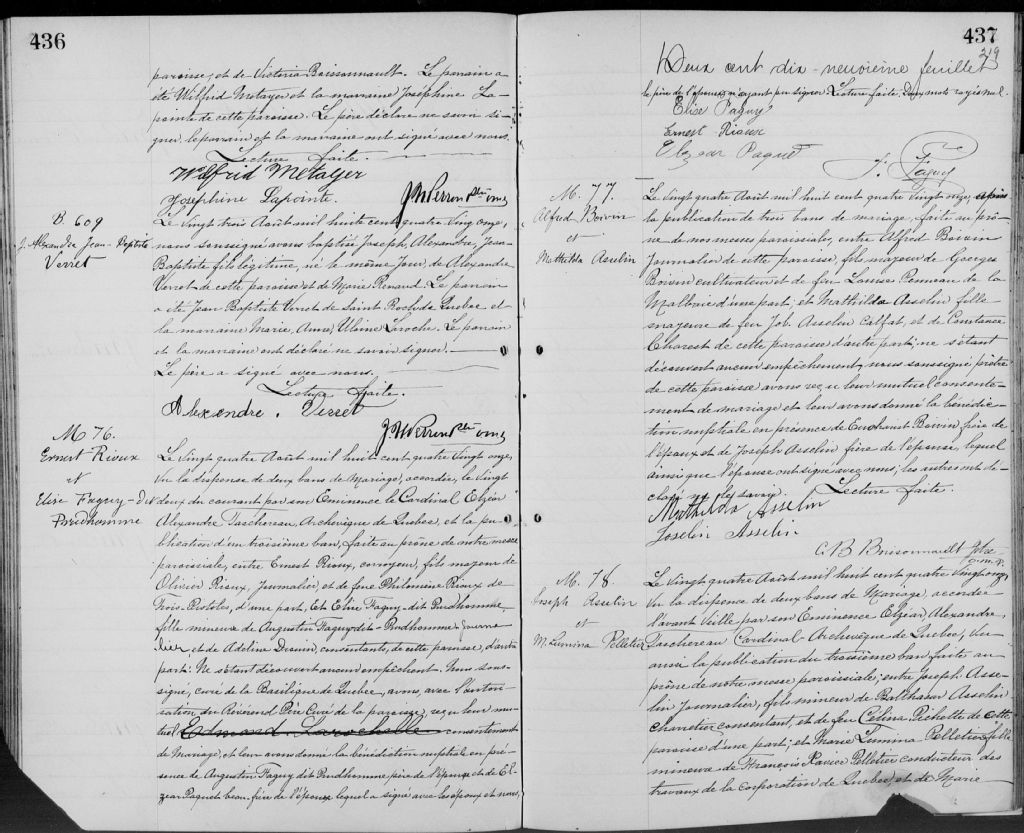 436
paroisse, et de Victoria Boissonnault. Le parrain a
été Wilfrid Métayer et la marraine Joséphine La-
pointe de cette paroisse. Le père déclare ne savoir si-
gner le parrain et la marraine ont signé avec nous.
Lecture faite.
Wilfrid Métayer
Josephine Lapointe.
B. 609
J. Alexandre Jean-Baptiste
Verret
Le vingt trois Août mil huit cent quatre vingt onze,
nous soussigné avons baptisé Joseph, Alexandre, Jean-
Baptiste fils légitime, né le même jour, de Alexandre
Verret de cette paroisse et de Marie Renaud. Le parrain
a été Jean Baptiste Verret de Saint Roch de Quebec et
la marraine Marie, Anne, Laroche. Le parrain
et la marraine ont déclaré ne savoir signer.
Le père a signé avec nous.
Lecture faite.
Alexandre. Verret
M 76.
Ernest Rioux
et
Elise Faguy-dit
Prudhomme
Le vingt quatre Août mil huit cent quatre vingt onze,
Vu la dispense de deux bans de Mariage, accordée, le vingt
deux du courant par son Eminence le Cardinal Elzéar
Alexandre Taschereau, Archevêque de Quebec, et la pu-
blication d'un troisième ban, faite au prône de notre messe
paroissiale, entre Ernest Rioux, corroyeur, fils majeur de
Olivier Rioux, Journalier, et de feue Philomène Rioux de
Trois-Pistoles, d'une part, Et Elise Faguy-dit Prudhomme,
fille mineure de Augustin Faguy dit-Prudhomme journa
lier et de Adeline consentants, de cette paroisse, d'autre
part: Ne s'étant découvert aucun empêchement. Nous sous-
signé, curé de la Basilique de Quebec, avons, avec l'autori-
sation du Révérend Père Curé de la paroisse, reçu leur mu-
tuel Edmond Larochelle consentement
de Mariage, et leur avons donné la bénédiction nuptiale en pré-
sence de Augustin Faguy dit Prudhomme père de l'épouse et de El-
zéar Paquet beau-frère de l'époux lequel a signé avec les époux et nous,
437
219
Deux cent dix-neuvième feuillet
le père de l'épouse n'ayant pu signer. Lecture faite. Deux mots rayés nul.
Elise Faguy
Ernest Rioux
Elzear Paquet
F. Faguy
M. 77.
Alfred Boivin
et
Mathilda Asselin
Le vingt quatre Août mil huit cent quatre vingt onze, après
la publication de trois bans de mariage, faite au prô-
ne de nos messes paroissiales, entre Alfred Boivin
Journalier de cette paroisse, fils majeur de Georges
Boivin cultivateur et de feu Louise de la
Malbaie d'une part; et Mathilda Asselin fille
majeure de feu Job. Asselin Calfat, et de Constance
Charest de cette paroisse d'autre part; ne s'étant
découvert aucun empêchement, nous soussigné prêtre
de cette paroisse avons reçu leur mutuel consente-
ment de mariage et leur avons donné la bénédic-
tion nuptiale en présence de Boivin frère de
l'époux et de Joseph Asselin frère de l'épouse, lequel
ainsi que l'épouse ont signé avec nous, les autres ont dé-
claré ne le savoir. Lecture faite.
Mathilda Asselin
Joseph Asselin
M. 78.
Joseph Asselin
et
M. Lumina Pelletier
Le vingt quatre Août mil huit cent quatre vingt onze,
Vu la dispense de deux bans de Mariage, accordée
l'avant veille par son Eminence Elzéar, Alexandre,
Taschereau Cardinal-Archevêque de Quebec, Vu
aussi la publication du troisième ban faite au
prône de notre messe paroissiale, entre Joseph Asse-
lin Journalier, fils mineur de Balthazar Asselin
charretier consentant, et de feu Célina Pichette de cette
paroisse d'une part; et Marie Lumina Pelletier fille
mineure de François Xavier Pelletier conducteur des
travaux de la Corporation de Quebec, et de Marie